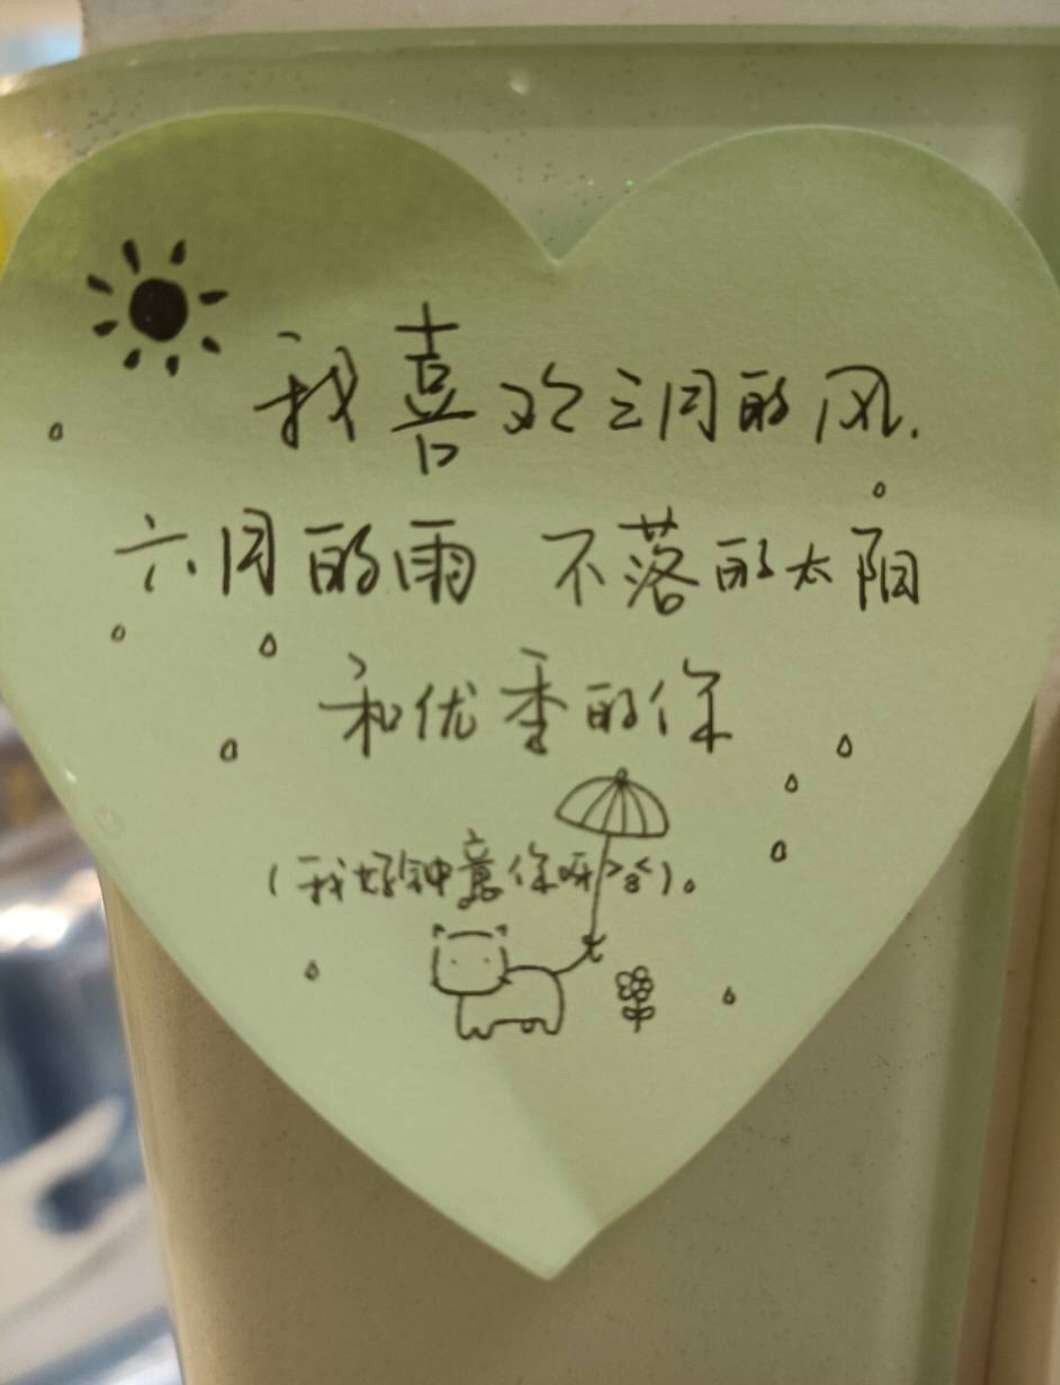 我喜欢三月的风.
六月的雨 不落的太阳
和优秀的你
(我好钟意你呀>8<)。